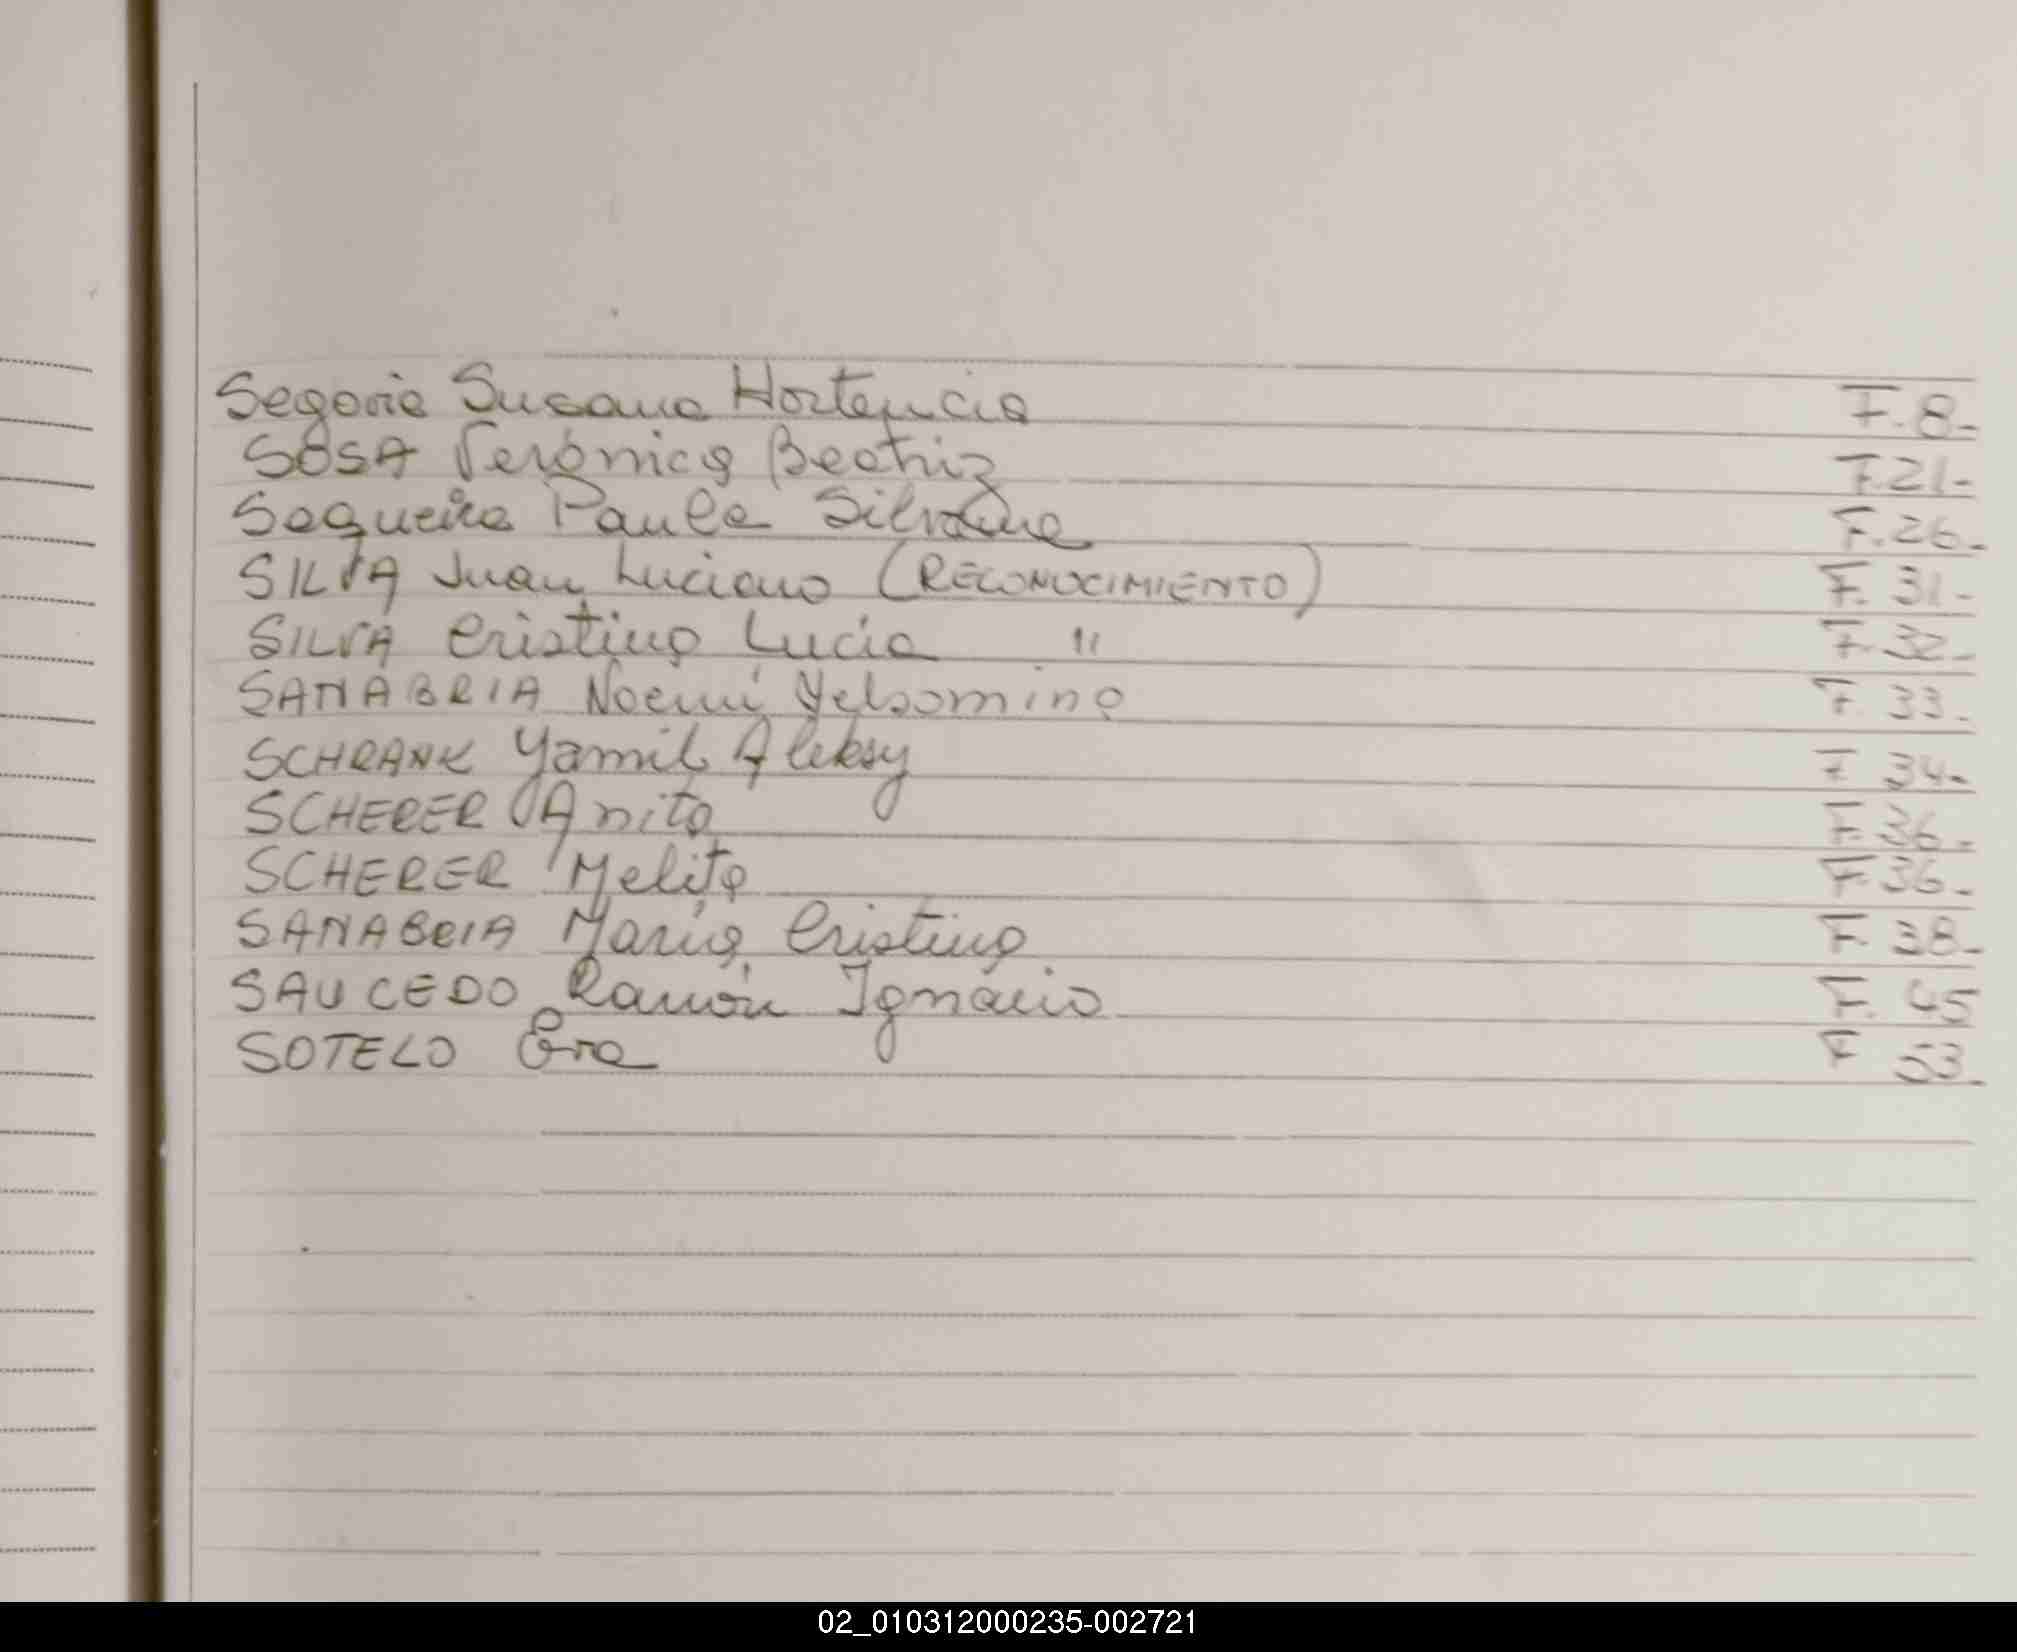 Segovia Susana Hortencia F. 8-
SOSA Verónica Beatriz F. 21-
Sequeira Paula Silvana F. 26-
SILVA Juan Luciano (RECONOCIMIENTO) F. 31-
SILVA Cristina Lucia " F. 32-
SANABRIA Noemí Yelsomina F 33-
SCHRANK Yamil Aleksy F 34-
SCHERER Anita F. 36-
SCHERER Melita F. 36-
SANABRIA María Cristina F. 38-
SAUCEDO Ramón Ignacio F. 45
SOTELO Eva F 53-
02_010312000235-002721